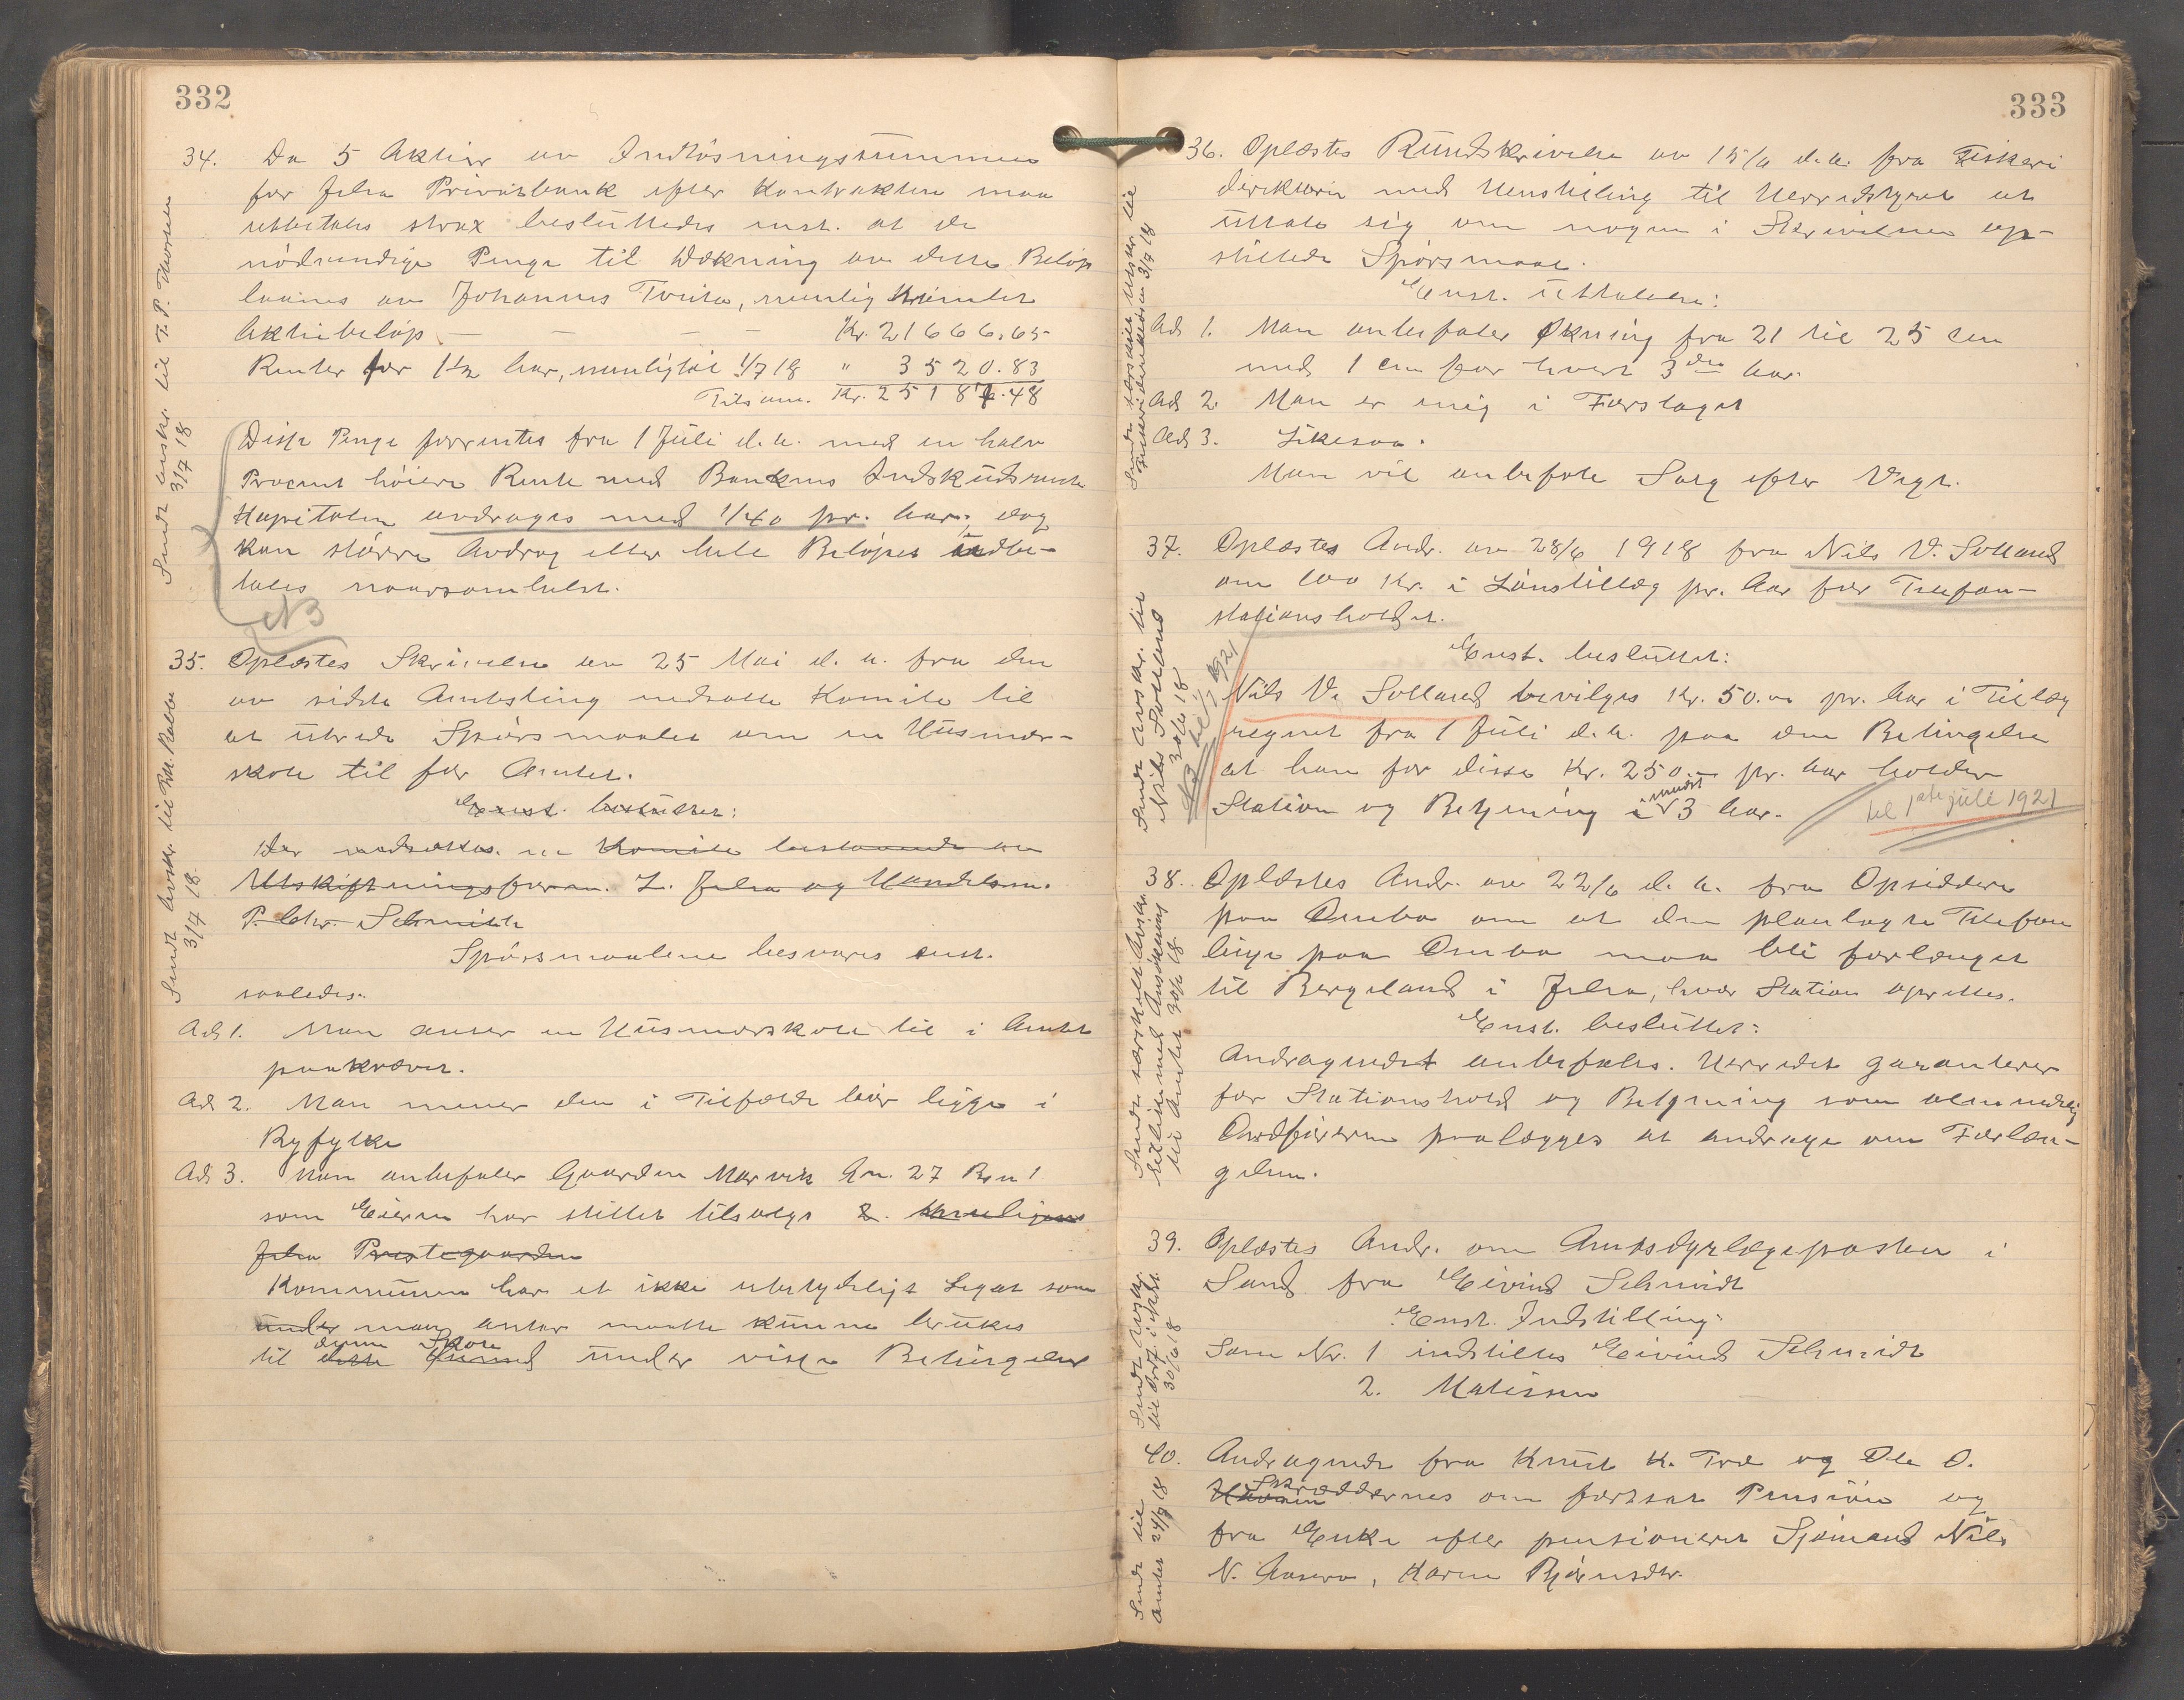 332
34. Da 5 Aktier av Indløsningssummen
for Jelsa Privatbank efter Kontrakten maa
utbetales strax besluttedes enst. at de
nødvendige Penge til Dækning av dette Beløp
laanes av Johannes Tveita, nemlig
Aktiebeløp — — — — Kr. 21666.65
Renter for 1½ Aar, nemlig til 1/7 18 " 3520.83
Tilsam. Kr. 25187.48
Disse Penge forrentes fra 1 Juli d. a. med en halv
Procent høiere Rente med Bankens Indskudsrente
Kapitalen avdrages med 1/40 pr. Aar, dog
kan større Avdrag eller hele Beløpet indbe-
tales naarsomhelst.
NB
Sendt utskr. til T. P. Thorsen
3/7 18
35. Oplæstes Skrivelse av 25 Mai d. a. fra den
av sidste Amtsting nedsatte Komite til
at utrede Spørsmaalet om en Husmor-
skole til for Amtet.
Enst. besluttet:
Der nedsættes en Komite bestaaende av
Utskiftningsform. L. Jelsa og Handelsm.
P. Chr. Schmidt
Spørsmaalene besvares enst.
saaledes.
Ad 1. Man anser en Husmorskole til i Amtet
paakrævet.
Ad 2. Man mener den i Tilfælde bør ligge i
Ryfylke
Ad 3. Man anbefaler Gaarden Marvik Gn. 27 Bn 1
som Eieren har stillet tilsalgs 2.
Jelsa Prestegaarden
Kommunen har et ikke ubetydeligt Legat som
under man antar maatte kunne brukes
denne Skole
til dette under visse Betingelser
Sendt Avskr. til
3/7 18
333
36. Oplæstes Rundskrivelse av 15/6 d. a. fra Fiskeri
direktøren med Henstilling til Herredstyret at
uttale sig om nogen i Skrivelsen op-
stillede Spørsmaal.
Enst. Uttalelse:
Ad 1. Man anbefaler Økning fra 21 til 25 cm
med 1 cm for hvert 3die Aar.
Ad 2. Man er enig i Forslaget
Ad 3. Likesaa.
Man vil anbefale Salg efter Vegt.
Fiskeridirektøren 3/7 18
37. Oplæstes Andr. av 28/6 1918 fra Nils V. Solland
om 100 Kr. i Lønstillæg pr. Aar for Telefon-
stationsholdet.
Enst. besluttet:
Nils V. Solland bevilges Kr. 50.00 pr. Aar i Tillæg
regnet fra 1 Juli d. a. paa den Betingelse
at han for disse Kr. 250.— pr. Aar holder
mindst
Station og Betjening i 3 Aar.
til 1ste juli 1921
NB til 1/7 1921
Sendt Avskr. til
Nils Solland
30/6 18
38. Oplæstes Andr. av 22/6 d. a. fra Opsiddere
paa Ombo om at den planlagte Telefon
linje paa Ombo maa bli forlænget
til Bergeland i Jelsa, hvor Station oprettes.
Enst. besluttet:
Andragendet anbefales. Herredet garanterer
for Stationshold og Betjening som almindelig
Ordføreren paalægges at andrage om Forlæn-
gelsen.
til Amtet 30/6 18
39. Oplæstes Andr. om Amtsdyrlægeposten i
Sand fra Eivind Schmidt
Enst. Indstilling:
Som Nr. 1 indstilles Eivind Schmidt
2. Matissen
Sendt Avskr.
30/6 18
40. Andragende fra Knut K. Træ og Ole O.
Skræddernes om fortsat Pension og
fra Enke efter pensioneret Sjømand Nils
N. Aasera, Karen Bjørnsdtr.
Sendt til
Amtet 24/9 18